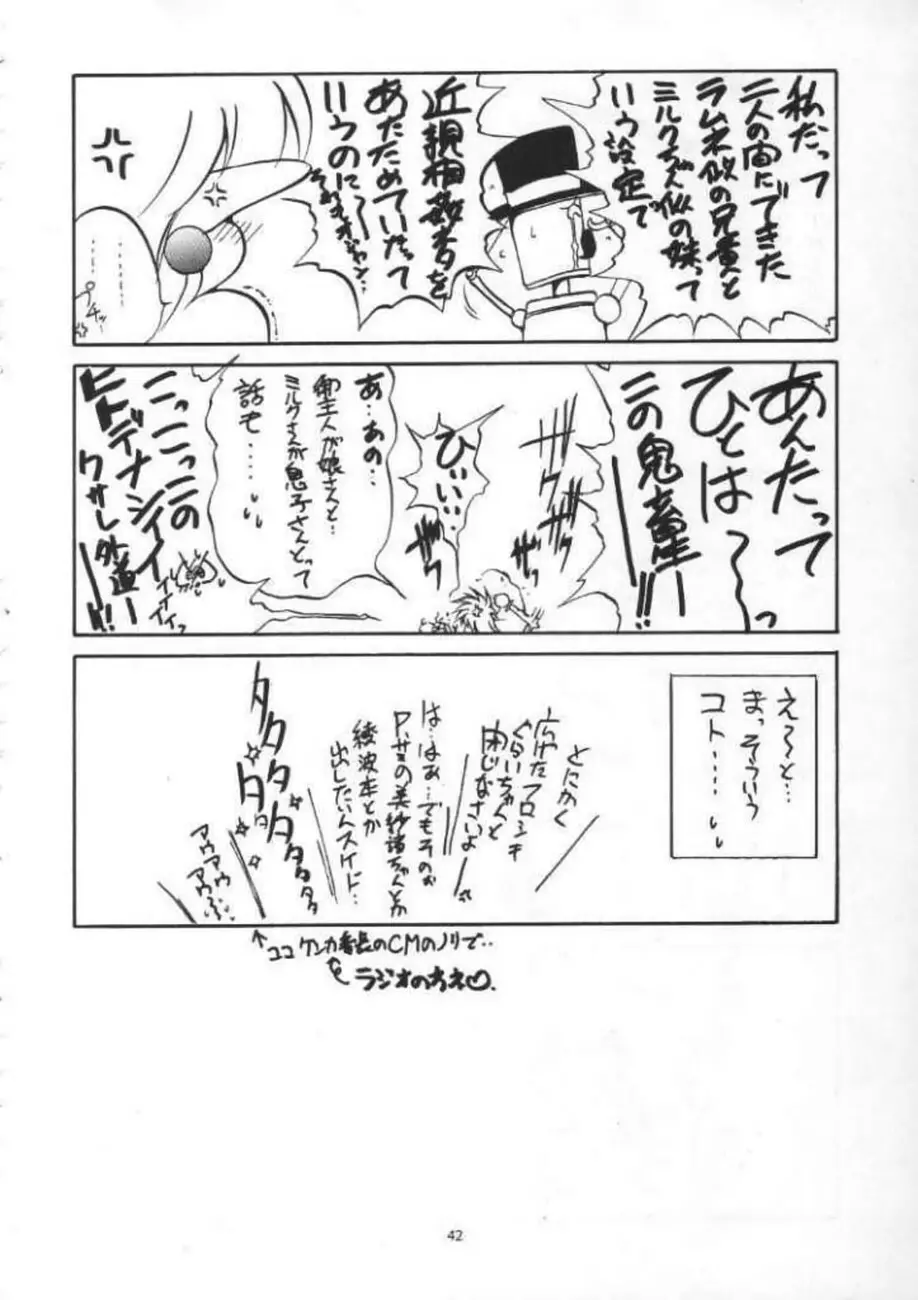 私だって
二人の間にできた
ラムネ似の兄貴と
ミルクちゃん似の妹って
いう設定で
近親相姦本を
あたためていたって
いうのに〜〜
そりゃないジャン…
………
………
プチッ…
あんたって
ひとは〜〜っ
この鬼畜ー!!
ザクザク
ひぃぃ…
ザクザク
ザク
あ…あの…
御主人が娘さんと…
ミルクさんが息子さんとって
話も……
こっこっこの
ヒトデナシイイ
イイイイイッ
クサレ外道ー!!
え〜と…
まっそういう
コト……
とにかく
広げたフロシキ
ぐらいちゃんと
閉じなさいよ
は…はあ…でもその前
P.サミの美紗緒ちゃんとか
綾波本とか
出したいんスケド…
タタタタタタタタ
アウアウアウ
↑ココケンカ番長のCMのノリで…
ラジオのネ♡.
42